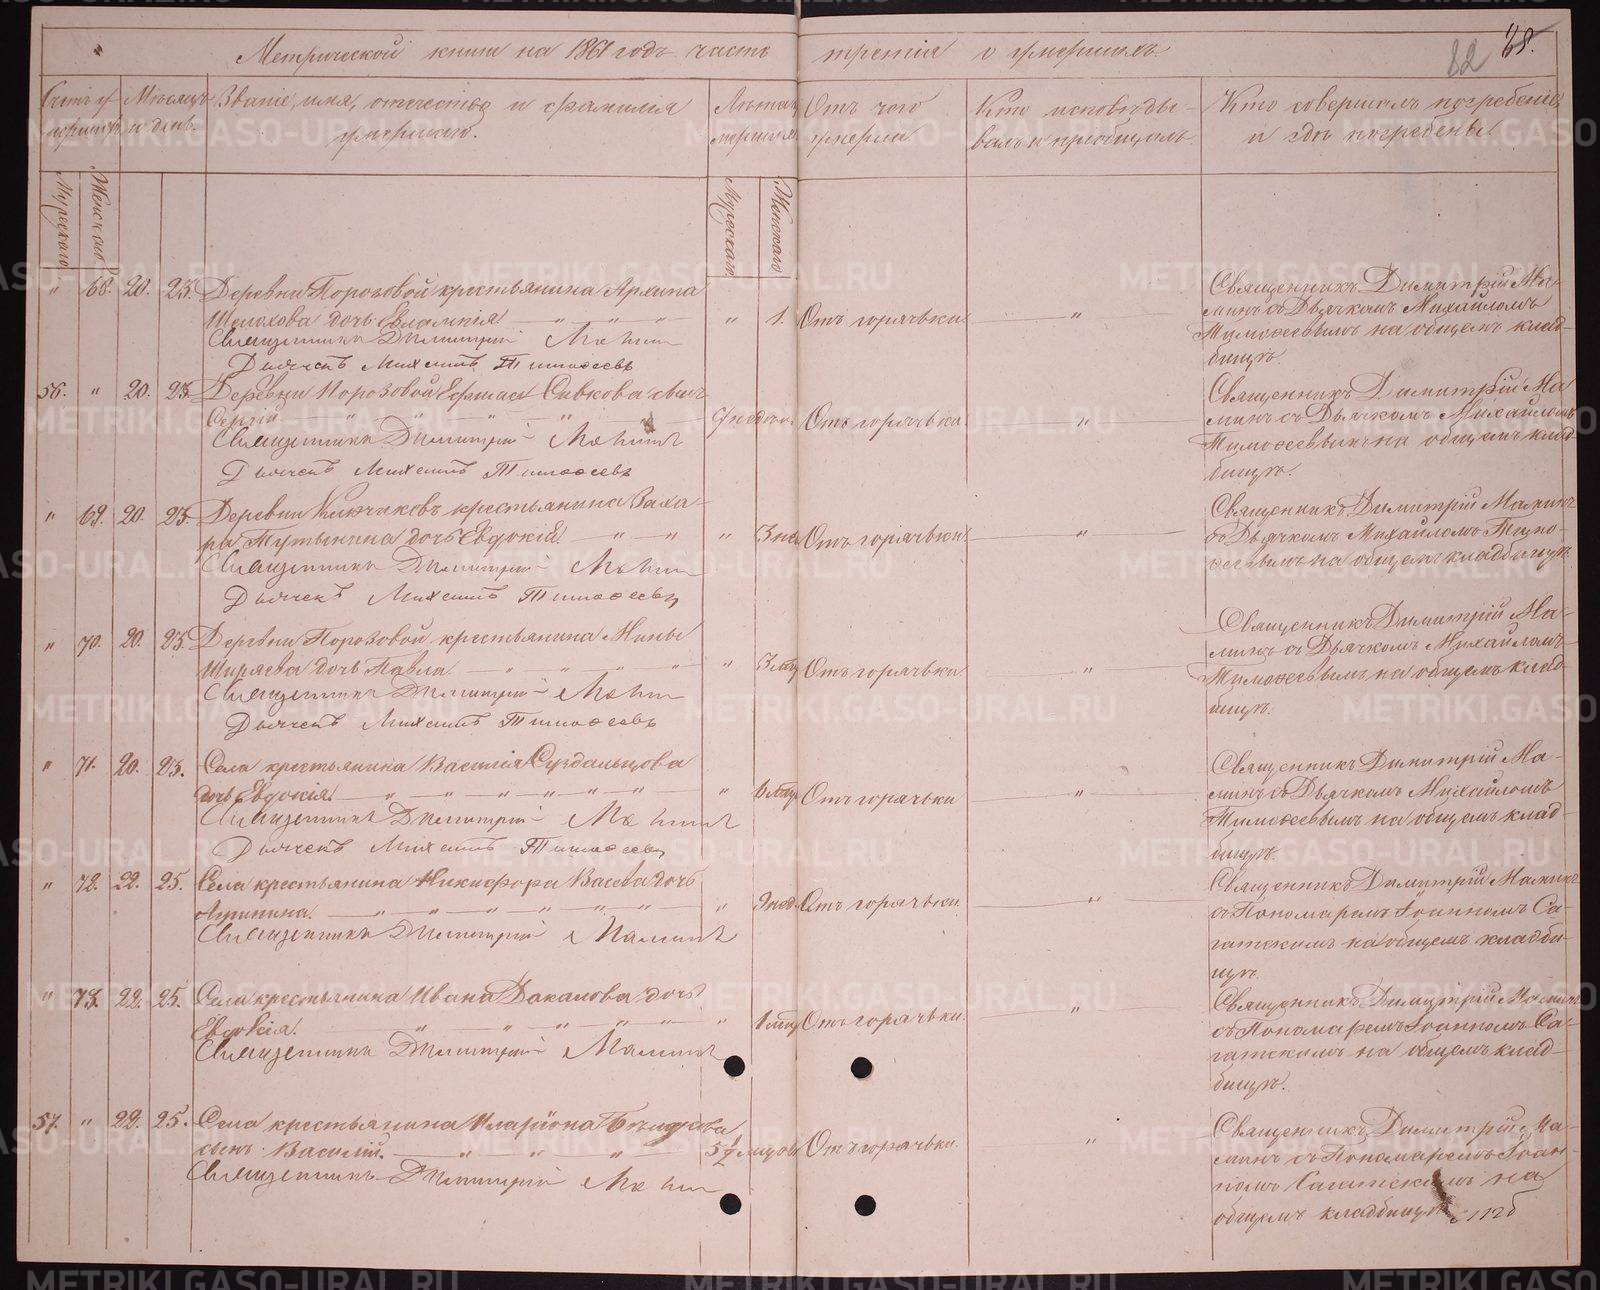 Метрической книги на 1861 годъ часть третія о умершихъ.
82
Счетъ умершихъ
Мѣсяцъ и день.
Званіе, имя, отчество и фамилія умершаго.
Лѣта умершаго
Отъ чего умерла
Кто исповѣдывалъ и пріобщалъ.
Кто совершалъ погребеніе и гдѣ погребены.
Мужескаго
Женскаго
Мужескаго
Женскаго
" 68. 20. 25. Деревни Порозовой крестьянина Архипа
Шелохова дочь Евлампія " 1. Отъ горячьки. "
Священникъ Димитрій Маминъ
Дьячекъ Михаилъ Тимоѳеевъ
Священникъ Димитрій Ма-
минъ съ Дьячкомъ Михайломъ
Тимоѳеевымъ на общемъ клад-
бищѣ.
56. " 20. 25. Деревни Порозовой Сивкова сынъ
Сергій 9 недѣль. Отъ горячьки. "
Священникъ Димитрій Маминъ
Дьячекъ Михаилъ Тимоѳеевъ
Священникъ Димитрій Ма-
минъ съ Дьячкомъ Михайломъ
Тимоѳеевымъ на общемъ клад-
бищѣ.
" 69. 20. 25. Деревни крестьянина Заха-
ра дочь Евдокія " Отъ горячьки. "
Священникъ Димитрій Маминъ
Дьячекъ Михаилъ Тимоѳеевъ
Священникъ Димитрій Маминъ
съ Дьячкомъ Михайломъ Тимо-
ѳеевымъ на общемъ кладбищѣ.
" 70. 20. 25 Деревни Порозовой крестьянина Мины
Ширяева дочь Павла " Отъ горячьки. "
Священникъ Димитрій Маминъ
Дьячекъ Михаилъ Тимоѳеевъ
Священникъ Димитрій Ма-
минъ съ Дьячкомъ Михайломъ
Тимоѳеевымъ на общемъ клад-
бищѣ.
" 71. 20. 25. Села крестьянина Василія Суздальцова
дочь Евдокія. " Отъ горячьки "
Священникъ Димитрій Маминъ
Дьячекъ Михаилъ Тимоѳеевъ
Священникъ Димитрій Ма-
минъ съ Дьячкомъ Михайломъ
Тимоѳеевымъ на общемъ клад-
бищѣ.
" 72. 22. 25. Села крестьянина Никифора дочь
Агрипина. " 9 нед. Отъ горячьки. "
Священникъ Димитрій Маминъ
Священникъ Димитрій Маминъ
съ Пономаремъ Іоанномъ Са-
гатскимъ на общемъ кладби-
щѣ.
" 73. 22. 25. Села крестьянина Ивана дочь
Евдокія. " Отъ горячьки. "
Священникъ Димитрій Маминъ
Священникъ Димитрій Маминъ
съ Пономаремъ Іоанномъ Са-
гатскимъ на общемъ клад-
бищѣ.
57. " 22. 25. Села крестьянина Иларіона
сынъ Василій. 5½ Отъ горячьки. "
Священникъ Димитрій Маминъ
Священникъ Димитрій Ма-
минъ съ Пономаремъ Іоан-
номъ Сагатскимъ на
общемъ кладбищѣ.
METRIKI.GASO-URAL.RU